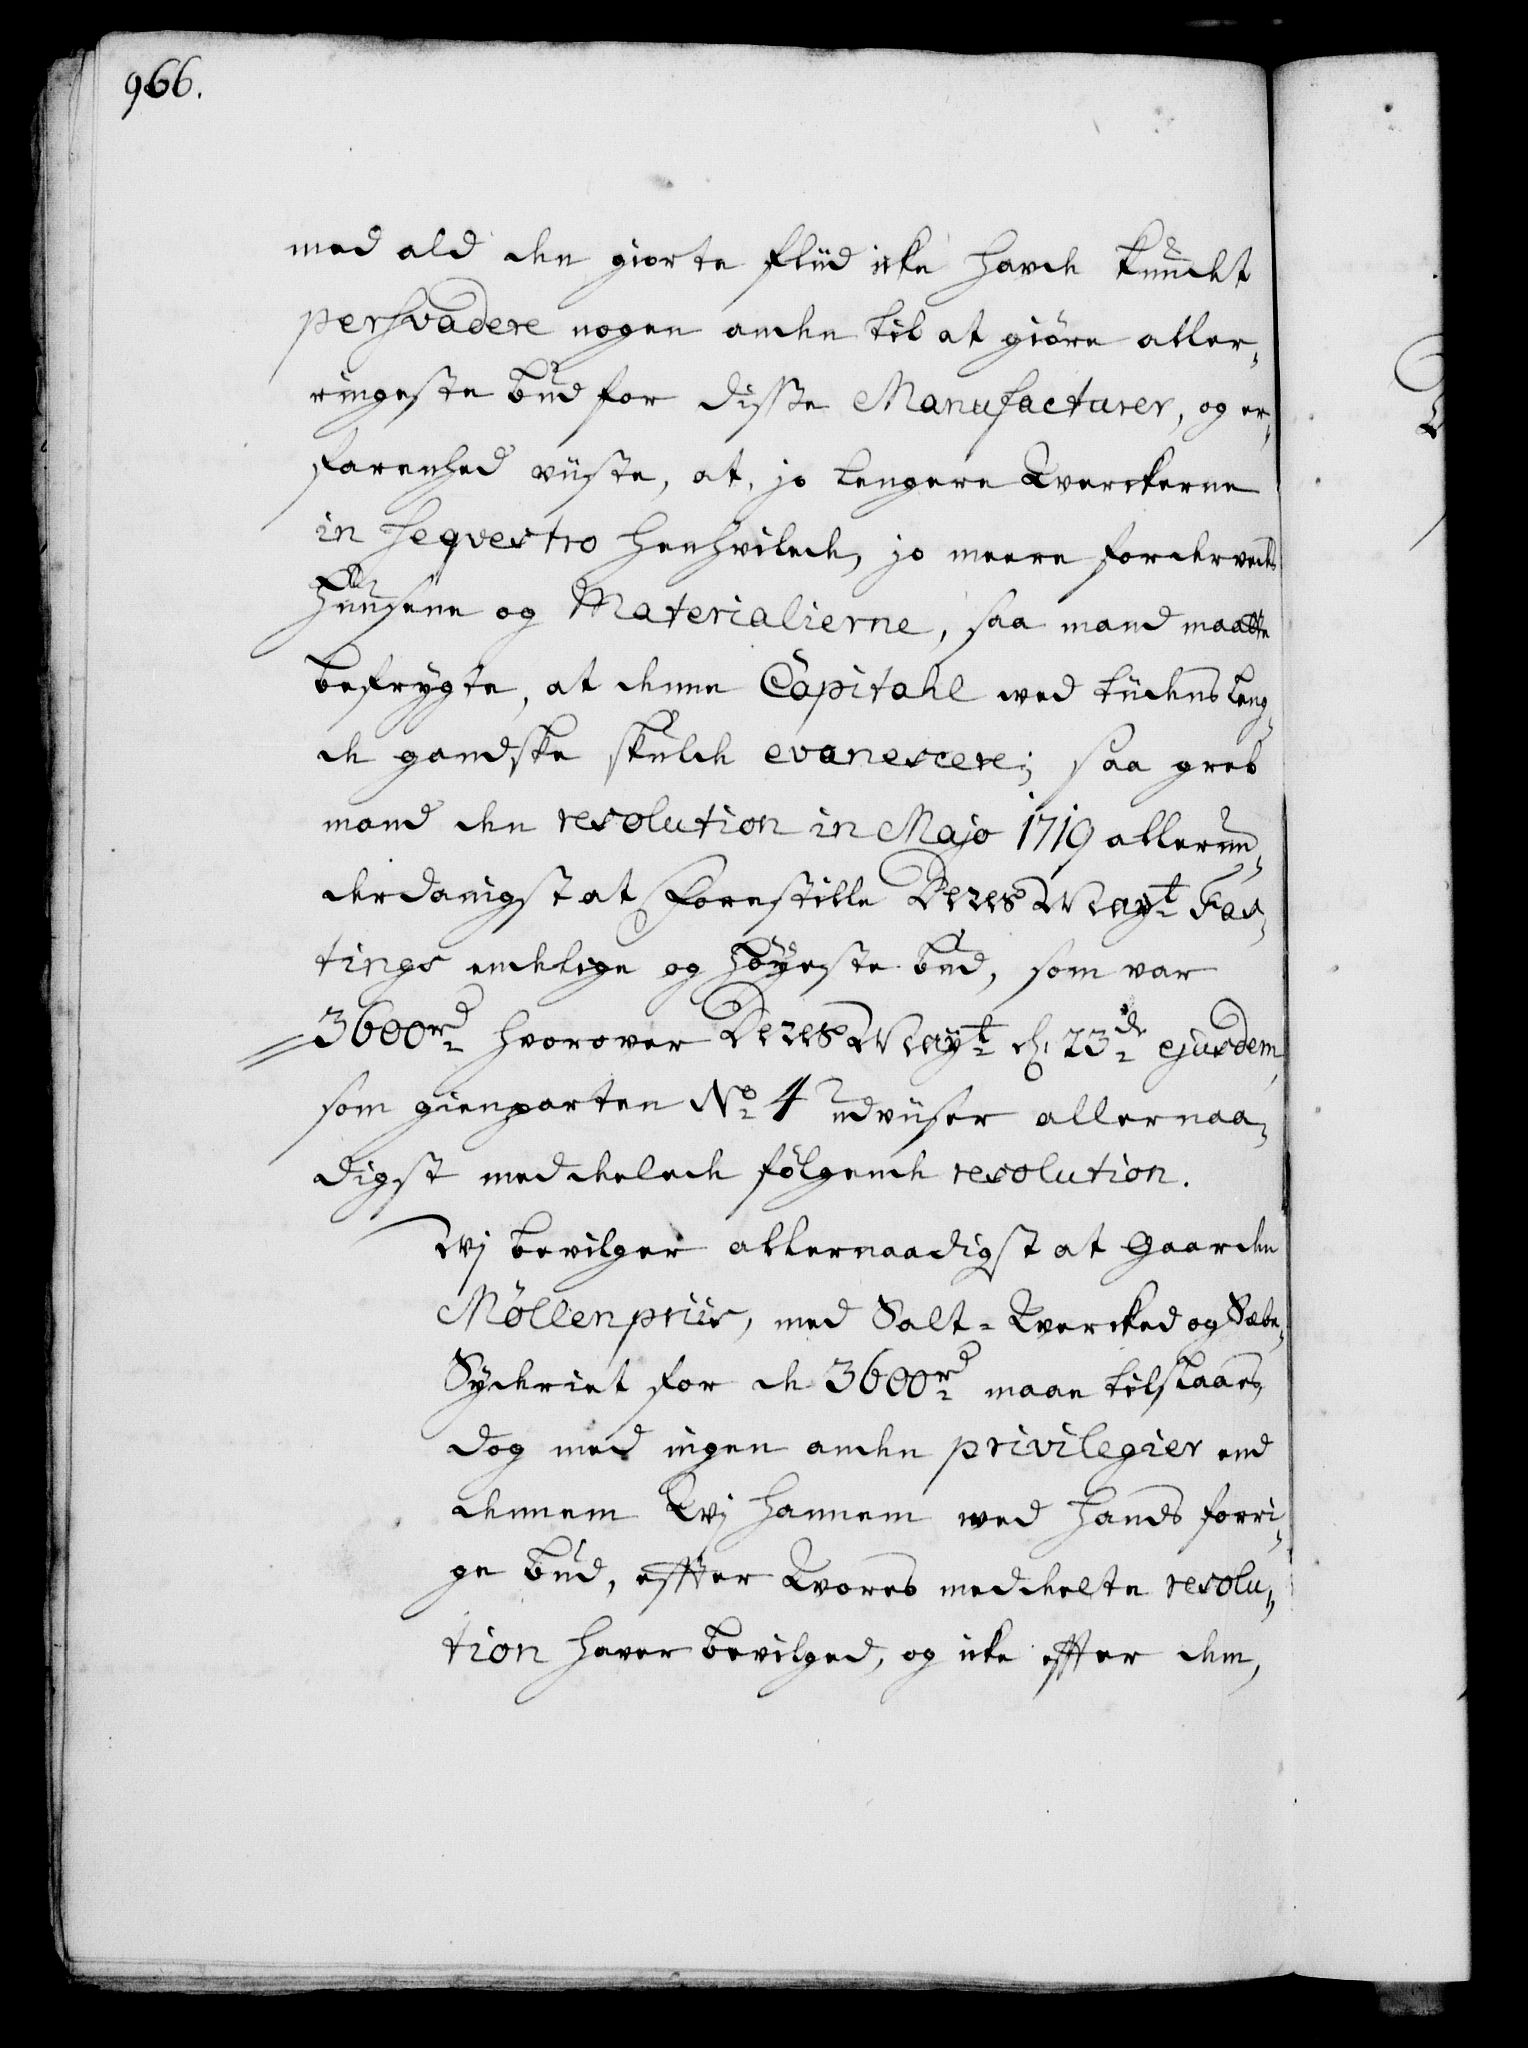 966.
med ald den giorte fliid icke hafde kundet
persvadere nogen anden til at giøre aller-
ringeste bud for disse Manufacturer, og er-
farenhed viiste, at, jo lengere Wærckerne
in seqvestro henhvilede, jo meere forderfvedes
Huusene og Materialierne, saa mand maatte
befrygte, at denne Capitahl med tiidens leng-
de gandske skulde evanescere; saa greb
mand den resolution in Majo 1719 allerun-
derdanigst at forestille Deres Mayt: Kas-
tings endelige og høyeste bud, som var
3600 rd: hvorover Deres Mayt: d: 23de ejusdem
som gienparten No: 4 udviiser allernaa-
digst meddeelede følgende resolution.
Wj bevilger allernaadigst at Gaarden
Møllenpriis, med Salt-Wercked og Sæbe-
Syderiet for de 3600 rd: maae tilslaaes,
dog med ingen anden privilegier end
dennem Wj hannem med hands forri-
ge bud, effter Wores meddeelte resolu-
tion hafver bevilged, og icke effter dem,